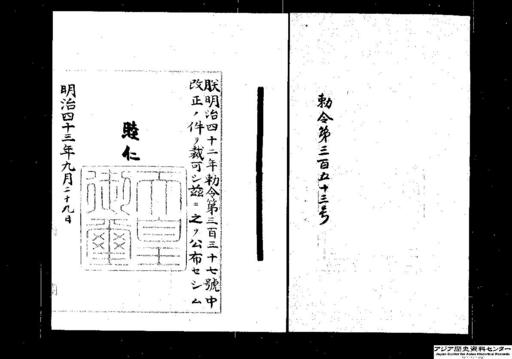 勅令第三百五十三号
朕明治四十二年勅令第三百三十七號中
改正ノ件ヲ裁可シ茲ニ之ヲ公布セシム
睦仁
天皇御璽
明治四十三年九月二十九日
アジア歴史資料センター
Japan Center for Asian Historical Records